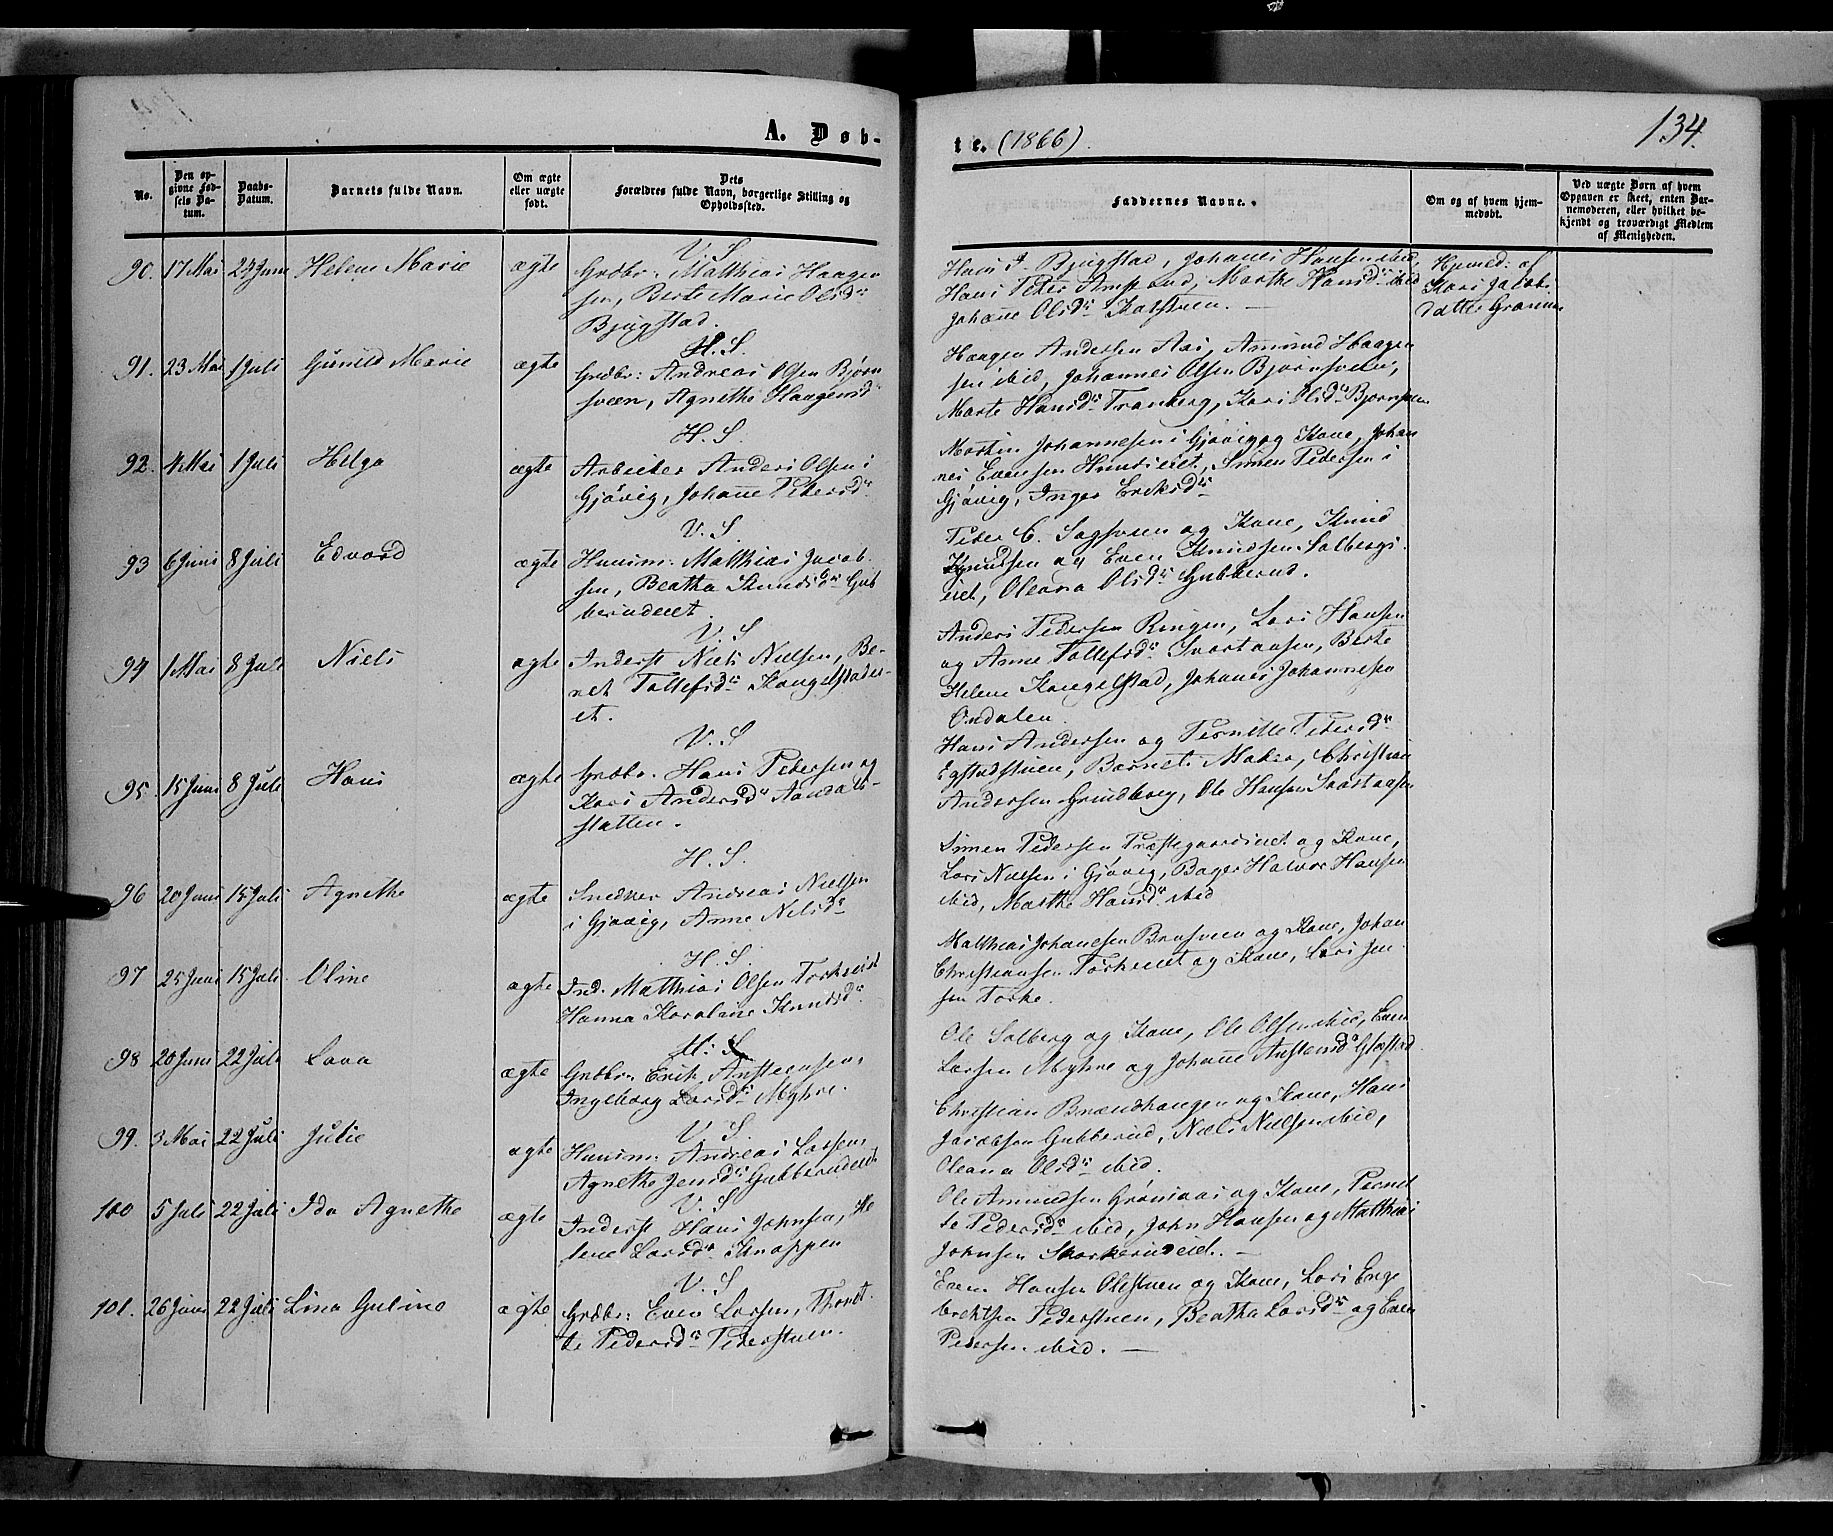 A. Døb-
te. (1866).
134.
No.
Den op-
givne Fød-
sels Da-
tum.
Daabs-
Datum.
Barnets fulde Navn.
Om ægte
eller uægte
født.
Dets
Forældres fulde Navn, borgerlige Stilling og
Opholdssted.
Faddernes Navne.
Om og af hvem hjem-
medøbt.
Ved uægte Børn af hvem
Opgaven er skeet, enten Bar-
nemoderen, eller hvilket be-
kjendt og troværdigt Medlem
af Menigheden.
V. S
90. 17 Mai 24 Juni Helene Marie ægte Grdbr. Matthias Haagen
sen, Berte Marie Olsdr
Bjugstad.
Hans P. Bjugstad, Johannes Hansen ibid,
Hans Peter Amlund, Marthe Hansdr ibid
Johanne Olsdr Kalstuen. —
Hjemmed: af
Kari Jacobs
datter
H. S.
91. 23 Mai 1 Juli Gunild Marie ægte Grdbr: Andreas Olsen Bjørn
sveen, Agnethe Haagensdr
Haagen Andersen Aas, Amund Haagen
sen ibid, Johannes Olsen Bjørnsveen,
Marte Hansdr Tranberg, Kari Olsdr Bjørnsveen
H. S.
92. 4 Mai 1 Juli Helga ægte Arbeider Anders Olsen i
Gjøvig, Johanne Pedersdr
Martin Johannesen i Gjøvig og Kone, Johan
nes Evensen Hunseiet, Simen Pedersen i
Gjøvig, Inger Eriksdr
V. S.
93 6 Juni 8 Juli Edvard ægte Huusm: Matthias Jacob-
sen, Beatha Knudsdr Gub
berudeiet.
Peder C. Sagsveen og Kone, Knud
Knudsen og Even Knudsen Solbergs
eiet, Oleana Olsdr Gubberud.
V. S
94 1 Mai 8 Juli Niels ægte Inderst Niels Nielsen, Be-
ret Tollefsdr Kongelstadei-
et.
Anders Pedersen Ringen, Lars Hansen
og Anne Tollefsdr Svartaasen, Berte
Helene Kongelstad, Johannes Johannesen
Ondalen.
V. S
95. 15 Juni 8 Juli Hans ægte Grdbr. Hans Pedersen og
Kari Andersdr Aandals-
slatten.
Hans Andersen og Pernille Pedersdr
Egstadstuen, Barnets Moder, Christian
Andersen Grindberg, Ole Hansen Svartaasen
H. S.
96 20 Juni 15 Juli Agnethe ægte Snedker Andreas Nielsen
i Gjøvig, Anne Nilsdr
Simen Pedersen Præstegaardseiet og Kone,
Lars Nielsen i Gjøvig, Bager Halvor Hansen
ibid, Marthe Hansdr ibid
H. S.
97 25 Juni 15 Juli Oline ægte Ind. Matthias Olsen Torkeeiet
Hanna Karoline Knudsdr
Matthias Johannesen Brusveen og Kone, Johan
Christiansen Torkeeiet og Kone, Lars Jen
sen Torke.
H. S
98 20 Juni 22 Juli Lava ægte Grdbr. Erik Anstensen,
Ingeborg Larsdr Myhre.
Ole Solberg og Kone, Ole Olsen ibid, Even
Larsen Myhre og Johanne Anstensdr Glæstad
V. S.
99. 3 Mai 22 Juli Julie ægte Huusm: Andreas Larsen,
Agnethe Jensdr Gubberudeiet
Christian Brændhaugen og Kone, Hans
Jacobsen Gubberud, Niels Nielsen ibid,
Oleana Olsdr ibid.
V. S
100 5 Juli 22 Juli Ida Agnethe ægte Inderst Hans Johnsen, He
lene Larsdr Knappen
Ole Amundsen Grønaas og Kone, Pernil
le Pedersdr ibid, John Hansen og Matthias
Johnsen Skarkerudeiet. —
V. S
101. 26 Juni 22 Juli Lina Guline ægte Grdbr: Even Larsen, Thorst
Pedersdr Pederstuen.
Even Hansen Olestuen og Kone, Lars Enge
bretsen Pederstuen, Beatha Larsdr og Even
Pedersen ibid. —